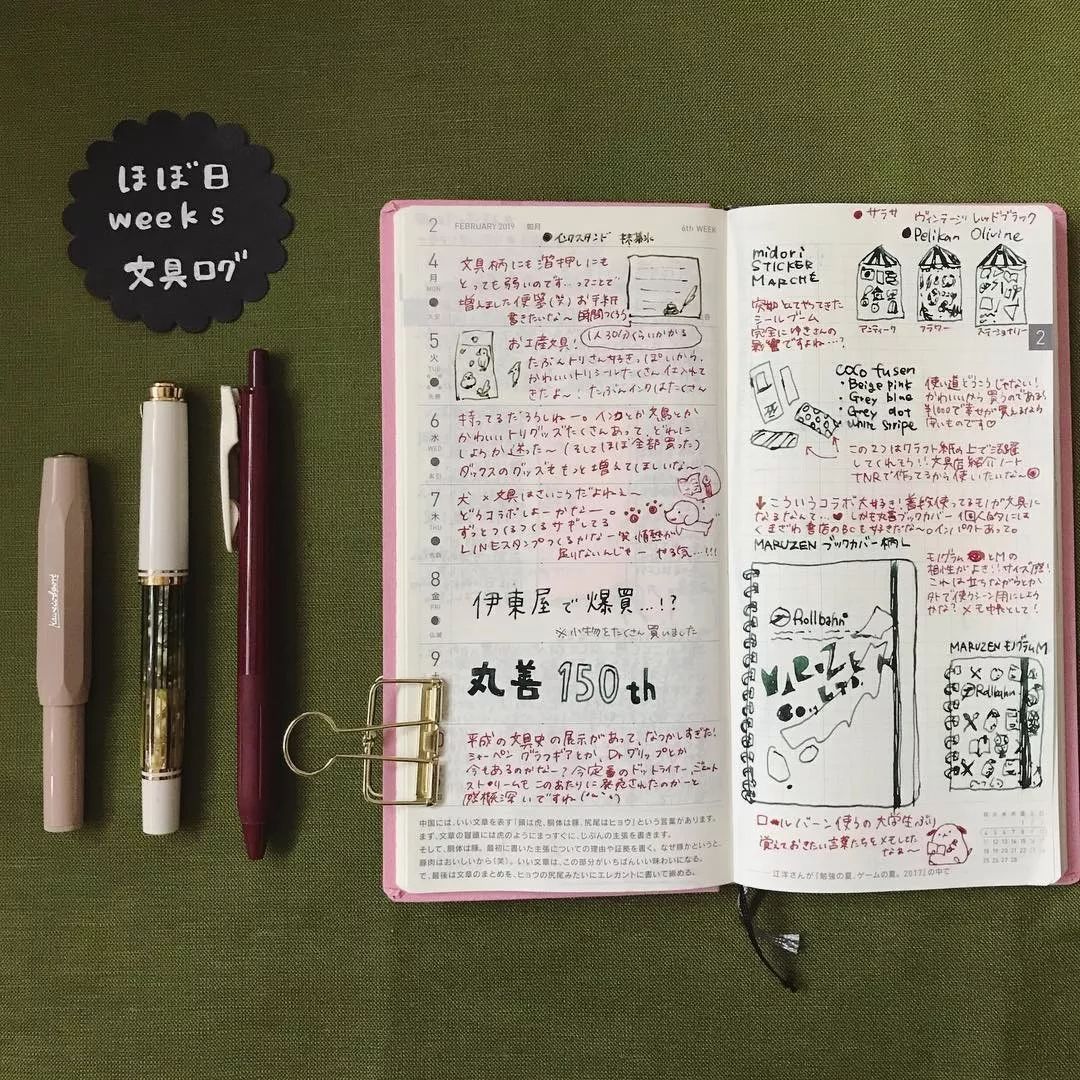 ほぼ日
weeks
文具ログ
Kaweco Sport
2 FEBRUARY 2019 如月 6th WEEK
●インクスタンド
4
月
MON
文具柄にも箔押しにも
とっても弱いのです…ってことで
増えました便箋(笑)お手紙
書きたいな〜
5
火
TUE
1人30分くらいかかる
お土産文具!
たぶんトリさん好きっぽいから、
かわいいトリシールたくさん仕入れて
きたよ〜!たぶんインクはたくさん
6
水
WED
持ってるだろうしね〜。インコとか文鳥とか
かわいいトリグッズたくさんあって、どれに
しようか迷った〜(そしてほぼ全部買った)
ダックスのグッズももっと増えてほしいな〜
7
木
THU
犬×文具はさいこうだよねぇ〜
どうコラボしよーかなー。
ずっとつくるつくるサギしてる
LINEスタンプつくるかな…笑
8
金
FRI
仏滅
伊東屋で爆買…!?
※小物をたくさん買いました
9
丸善150th
平成の文具史の展示があって、なつかしすぎた!
シャーペン グラフギアとか、Dr.グリップとか
今もあるのかな〜?今定番のドットライナー、ジェット
ストリームもこのあたりに発売されたのかーと
感慨深いですね
中国には、いい文章を表す「頭は虎、胴体は豚、尻尾はヒョウ」という言葉があります。
まず、文章の冒頭には虎のようにまっすぐに、じぶんの主張を書きます。
そして、胴体は豚。最初に書いた主張についての理由や証拠を書く。なぜ豚かというと、
豚肉はおいしいから(笑)。いい文章は、この部分がいちばんいい味わいになる。
で、最後は文章のまとめを、ヒョウの尻尾みたいにエレガントに書いて締める。
●サラサ ヴィンテージ レッドブラック
●Pelikan Olivine
midori
STICKER
MARCHE
突如としてやってきた
シールブーム
完全にゆきさんの
影響ですよね…?
アンティーク フラワー ステーショナリー
2
coco fusen
・Beige pink
・Grey blue
・Grey dot
・White stripe
使い道どうこうじゃない!
かわいいから買うのである!
¥1000で幸せが買えるなら
安いものです♡
この2つはクラフト紙の上で活躍
してくれそう!!文具店紹介ノート
TNRで作ってるから使いたいな〜
↓こういうコラボ大好き!普段使ってるモノが文具に
なるなんて…♥しかも丸善ブックカバー!個人的には
くまざわ書店のBCも好きだな〜◎インパクトあって。
MARUZEN ブックカバー柄L
モノグラムとMの
相性がよき!!サイズ感!
これは立ちながらとか
外で使うシーン用にしよう
かな?メモ中心として!
Rollbahn
MARUZEN
Co., LTD.
MARUZEN モノグラムM
Rollbahn
ロールバーン使うの大学生ぶり
覚えておきたい言葉たちをメモしてた
なぁ〜
江洋さんが『勉強の夏、ゲームの夏。2017』の中で